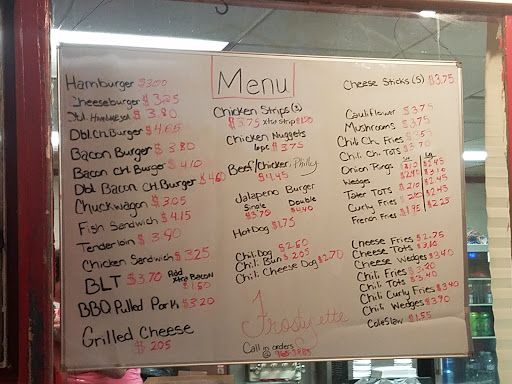 Menu
Hamburger $3.00
Cheeseburger $3.25
Dbl. Hamburger $3.80
Dbl. Ch. Burger $4.05
Bacon Burger $3.80
Bacon CH. Burger $4.10
Dbl Bacon CH. Burger $4.60
Chuckwagon $3.05
Fish Sandwich $4.15
Tenderloin $3.90
Chicken Sandwich $3.25
BLT $3.70 Add Xtra Bacon $1.50
BBQ Pulled Pork $3.20
Grilled Cheese
$2.05
Chicken Strips (3)
$3.75 xtra strip
Chicken Nuggets
10pc $3.75
Beef/Chicken Philly
$4.45
Jalapeno Burger
Single Double
$3.70 $4.40
Hot Dog $1.75
Chili Dog $2.60
Chili Bun $2.05
Chili Cheese Dog $2.70
Frostyette
Call in orders
@
Cheese Sticks (5) $3.75
Cauliflower $3.75
Mushrooms $3.75
Chili Ch. Fries $3.50
Chili Ch. Tots $3.70
Onion Rings $2.10 $2.45
Wedges $3.10
Tater Tots $2.10 $2.45
Curly Fries $2.45
French Fries $1.95 $2.25
Cheese Fries $2.75
Cheese Tots $3.10
Cheese Wedges $3.40
Chili Fries $3.20
Chili Tots $3.40
Chili Curly Fries $3.40
Chili Wedges $3.90
Coleslaw $1.55